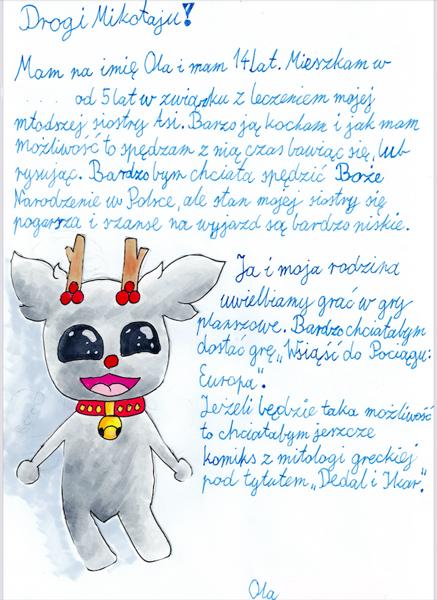 Drogi Mikołaju!
Mam na imię Ola i mam 14 lat. Mieszkam w
od 5 lat w związku z leczeniem mojej
młodszej siostry Asi. Barzo ją kocham i jak mam
możliwość to spędzam z nią czas bawiąc się, lub
rysując. Bardzo bym chciała spędzić Boże
Narodzenie w Polsce, ale stan mojej siostry się
pogarsza i szanse na wyjazd są bardzo niskie.
Ja i moja rodzina
uwielbiamy grać w gry
planszowe. Bardzo chciałabym
dostać grę „Wsiąść do Pociągu:
Europa".
Jeżeli będzie taka możliwość
to chciałabym jeszcze
komiks z mitologi greckiej
pod tytułem „Dedal i Ikar."
Ola